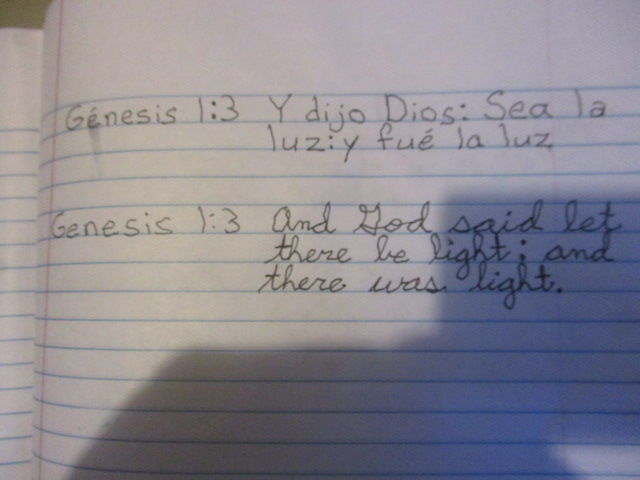 Génesis 1:3 Y dijo Dios: Sea la
luz: y fué la luz
Genesis 1:3 And God said let
there be light; and
there was light.